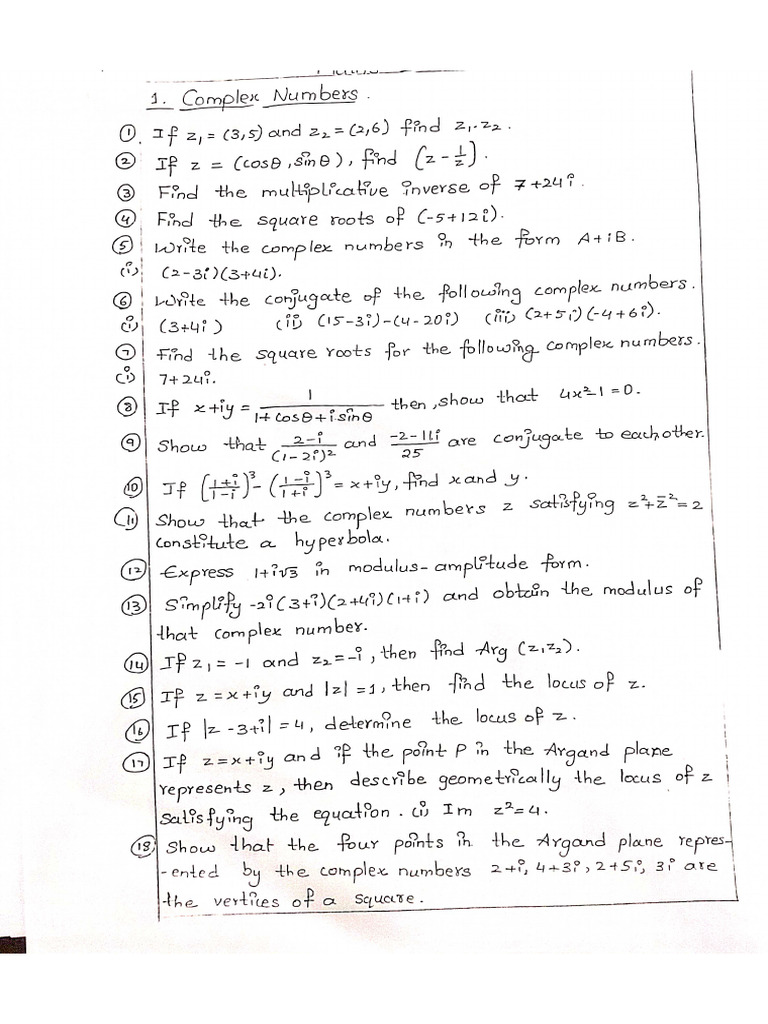 1. Complex Numbers.
①. If z₁ = (3,5) and z₂ = (2,6) find z₁·z₂.
② If z = (cosθ, sinθ), find (z - 1/z).
③ Find the multiplicative inverse of 7+24i.
④ Find the square roots of (-5+12i).
⑤ Write the complex numbers in the form A+iB.
(i) (2-3i)(3+4i).
⑥ Write the conjugate of the following complex numbers.
(i) (3+4i) (ii) (15-3i)-(4-20i) (iii) (2+5i)(-4+6i).
⑦ Find the square roots for the following complex numbers.
(i) 7+24i.
⑧ If x+iy = 1/(1+cosθ+i sinθ) then, show that 4x²-1=0.
⑨ Show that (2-i)/(1-2i)² and (-2-11i)/25 are conjugate to each other.
⑩ If ((1+i)/(1-i))³ - ((1-i)/(1+i))³ = x+iy, find x and y.
⑪ Show that the complex numbers z satisfying z²+z̄²=2
constitute a hyperbola.
⑫ Express 1+i√3 in modulus-amplitude form.
⑬ Simplify -2i(3+i)(2+4i)(1+i) and obtain the modulus of
that complex number.
⑭ If z₁ = -1 and z₂ = -i, then find Arg (z₁z₂).
⑮ If z = x+iy and |z| = 1, then find the locus of z.
⑯ If |z-3+i| = 4, determine the locus of z.
⑰ If z = x+iy and if the point P in the Argand plane
represents z, then describe geometrically the locus of z
satisfying the equation. (i) Im z²=4.
⑱ Show that the four points in the Argand plane repres-
-ented by the complex numbers 2+i, 4+3i, 2+5i, 3i are
the vertices of a square.